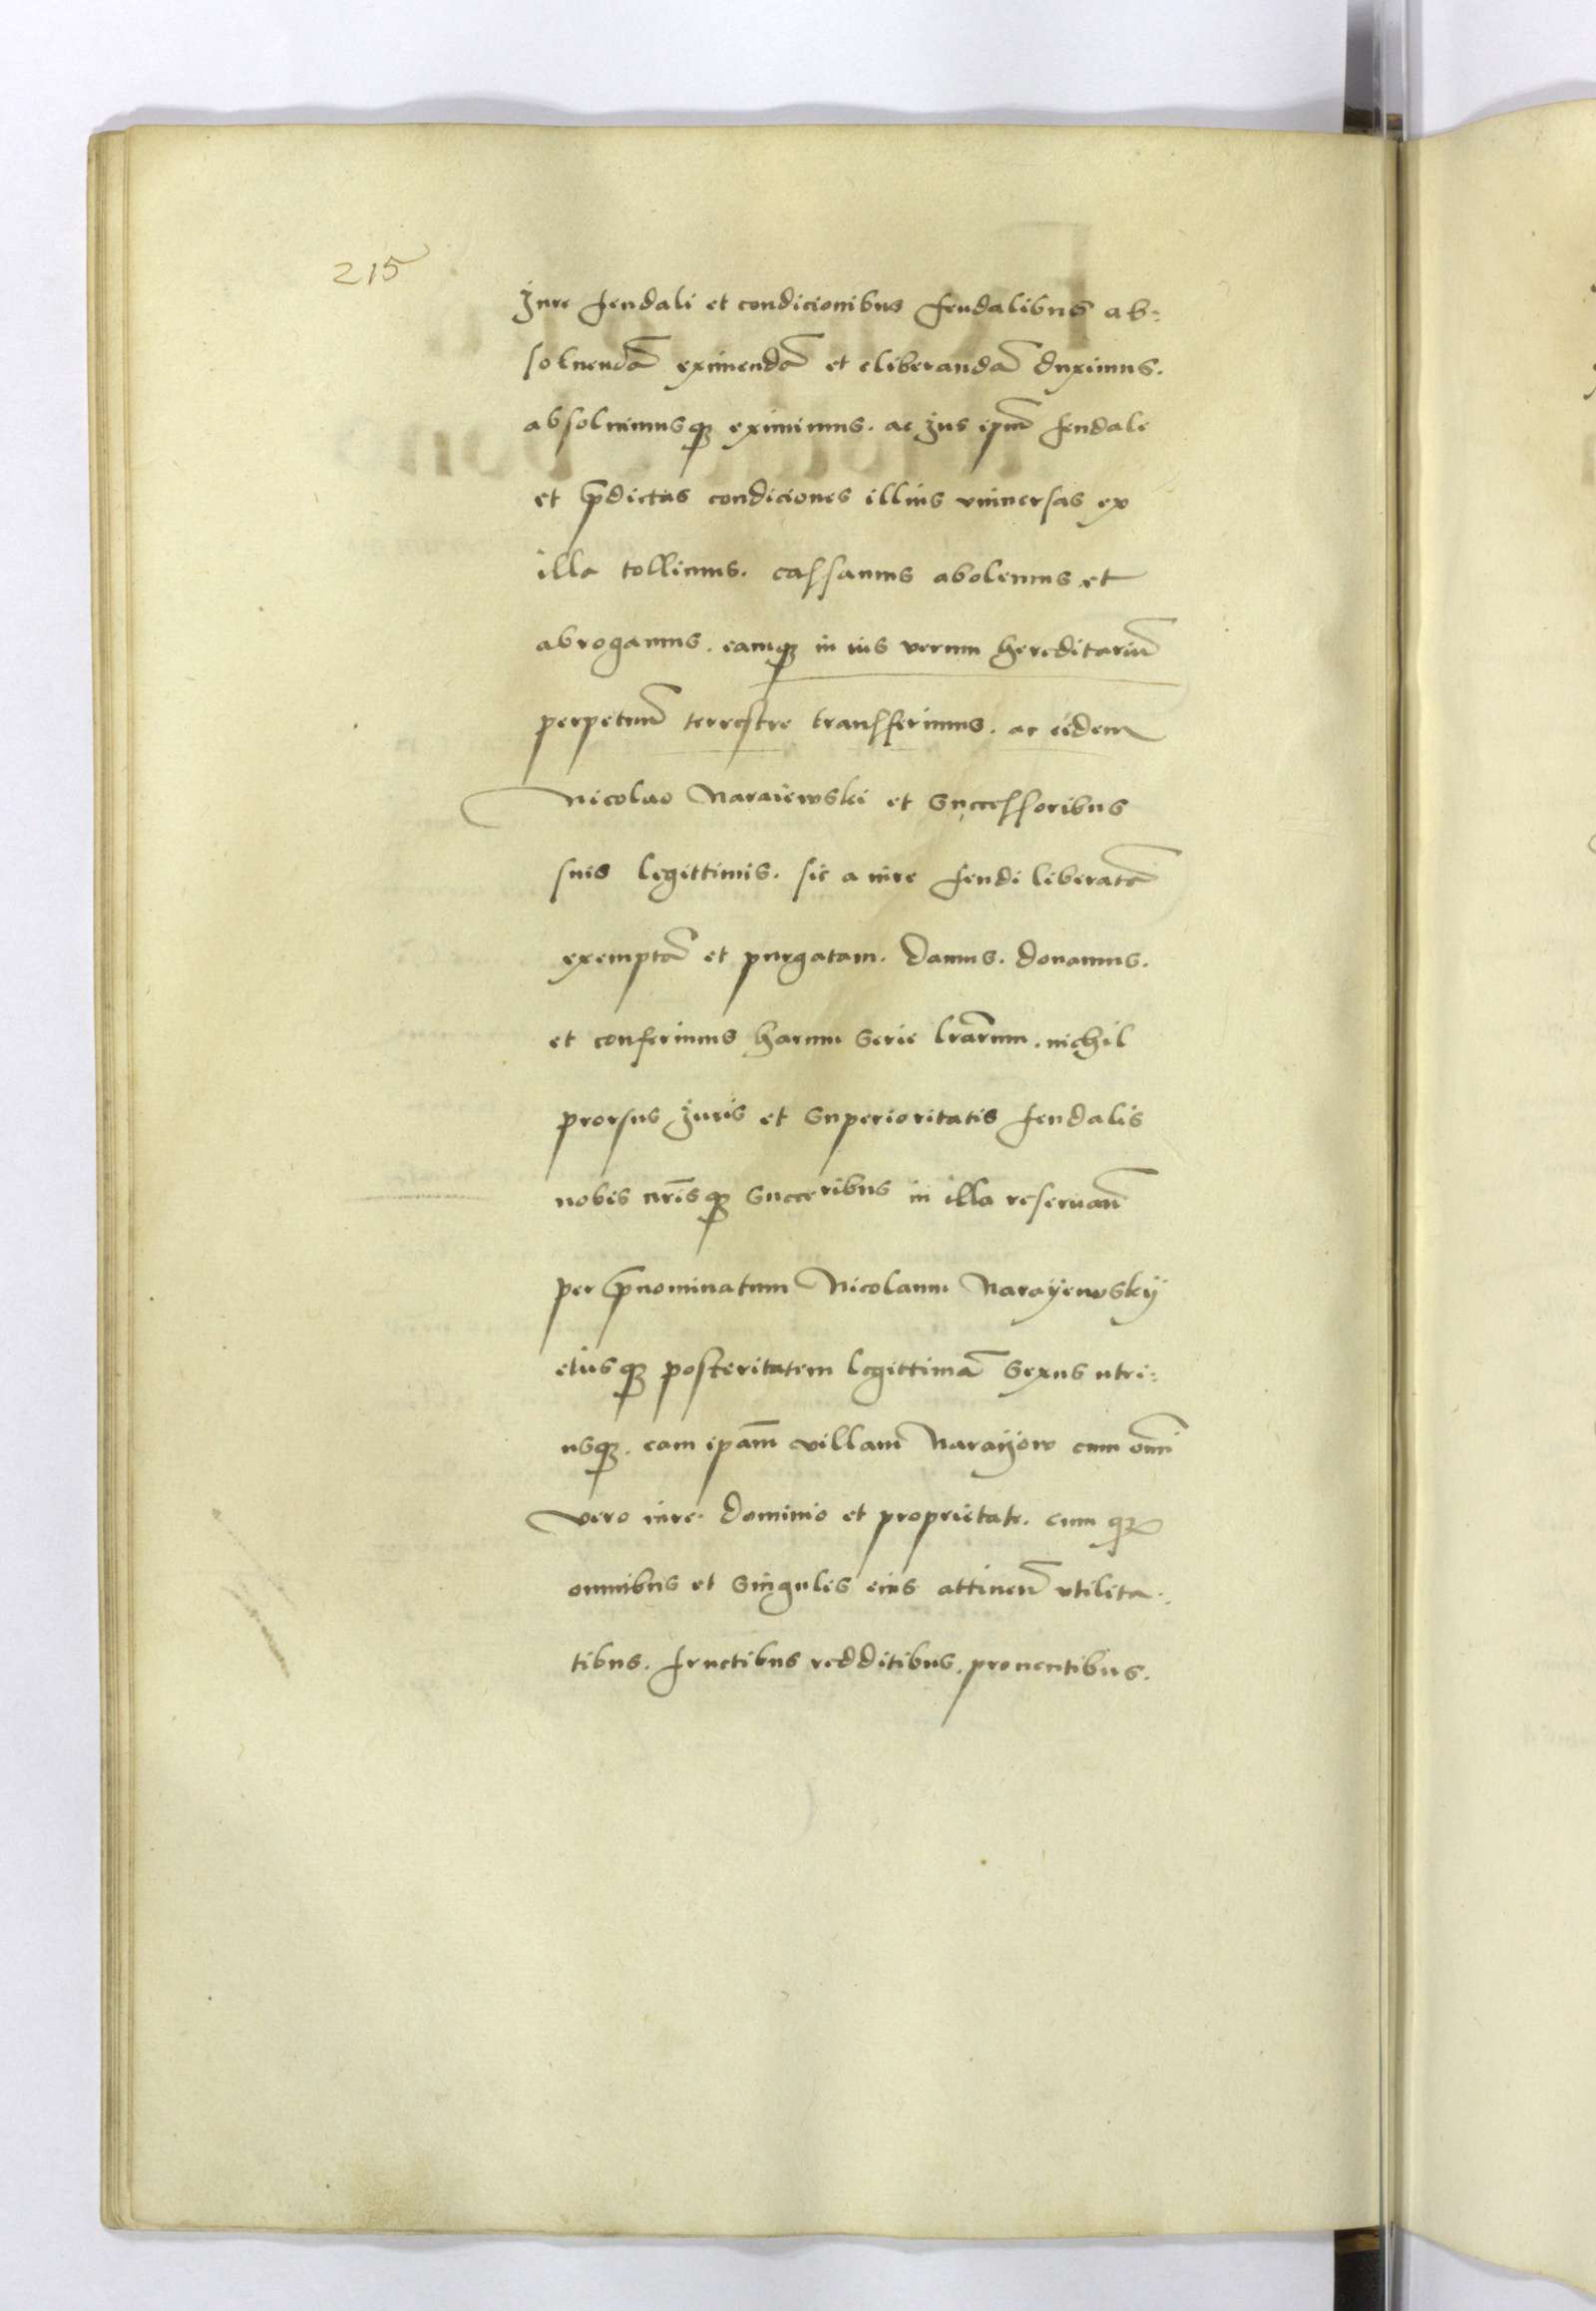 215
Jure feudali et condicionibus feudalibus ab:
soluendā eximendā et eliberandā duximus.
absoluimusqȝ eximimus. ac Jus ipm̄ feudale
et p̄dictas condiciones illius vniuersas ex
illa tollimus. cassamus abolemus et
abrogamus. eamqȝ in ius verum hereditariū
perpetuū terrestre transferimus. ac eidem
Nicolao Naraiewski et Successoribus
suis legittimis. sic a iure feudi liberatā
exemptā et purgatam. Damus. donamus.
et conferimus harum Serie lrārum. nichil
prorsus Juris et Superioritatis feudalis
nobis nr̄isqȝ Succeribus in illa reseruan̄
per p̄nominatum Nicolaum Narayewskÿ
eiusqȝ posteritatem legittimā Sexus utri:
usqȝ. eam ipām villam Narayow cum om̄i
vero iure. Dominio et proprietate. cum qȝ
omnibus et Singulis eius attinen̄ vtilita:
tibus. fructibus redditibus. prouentibus.